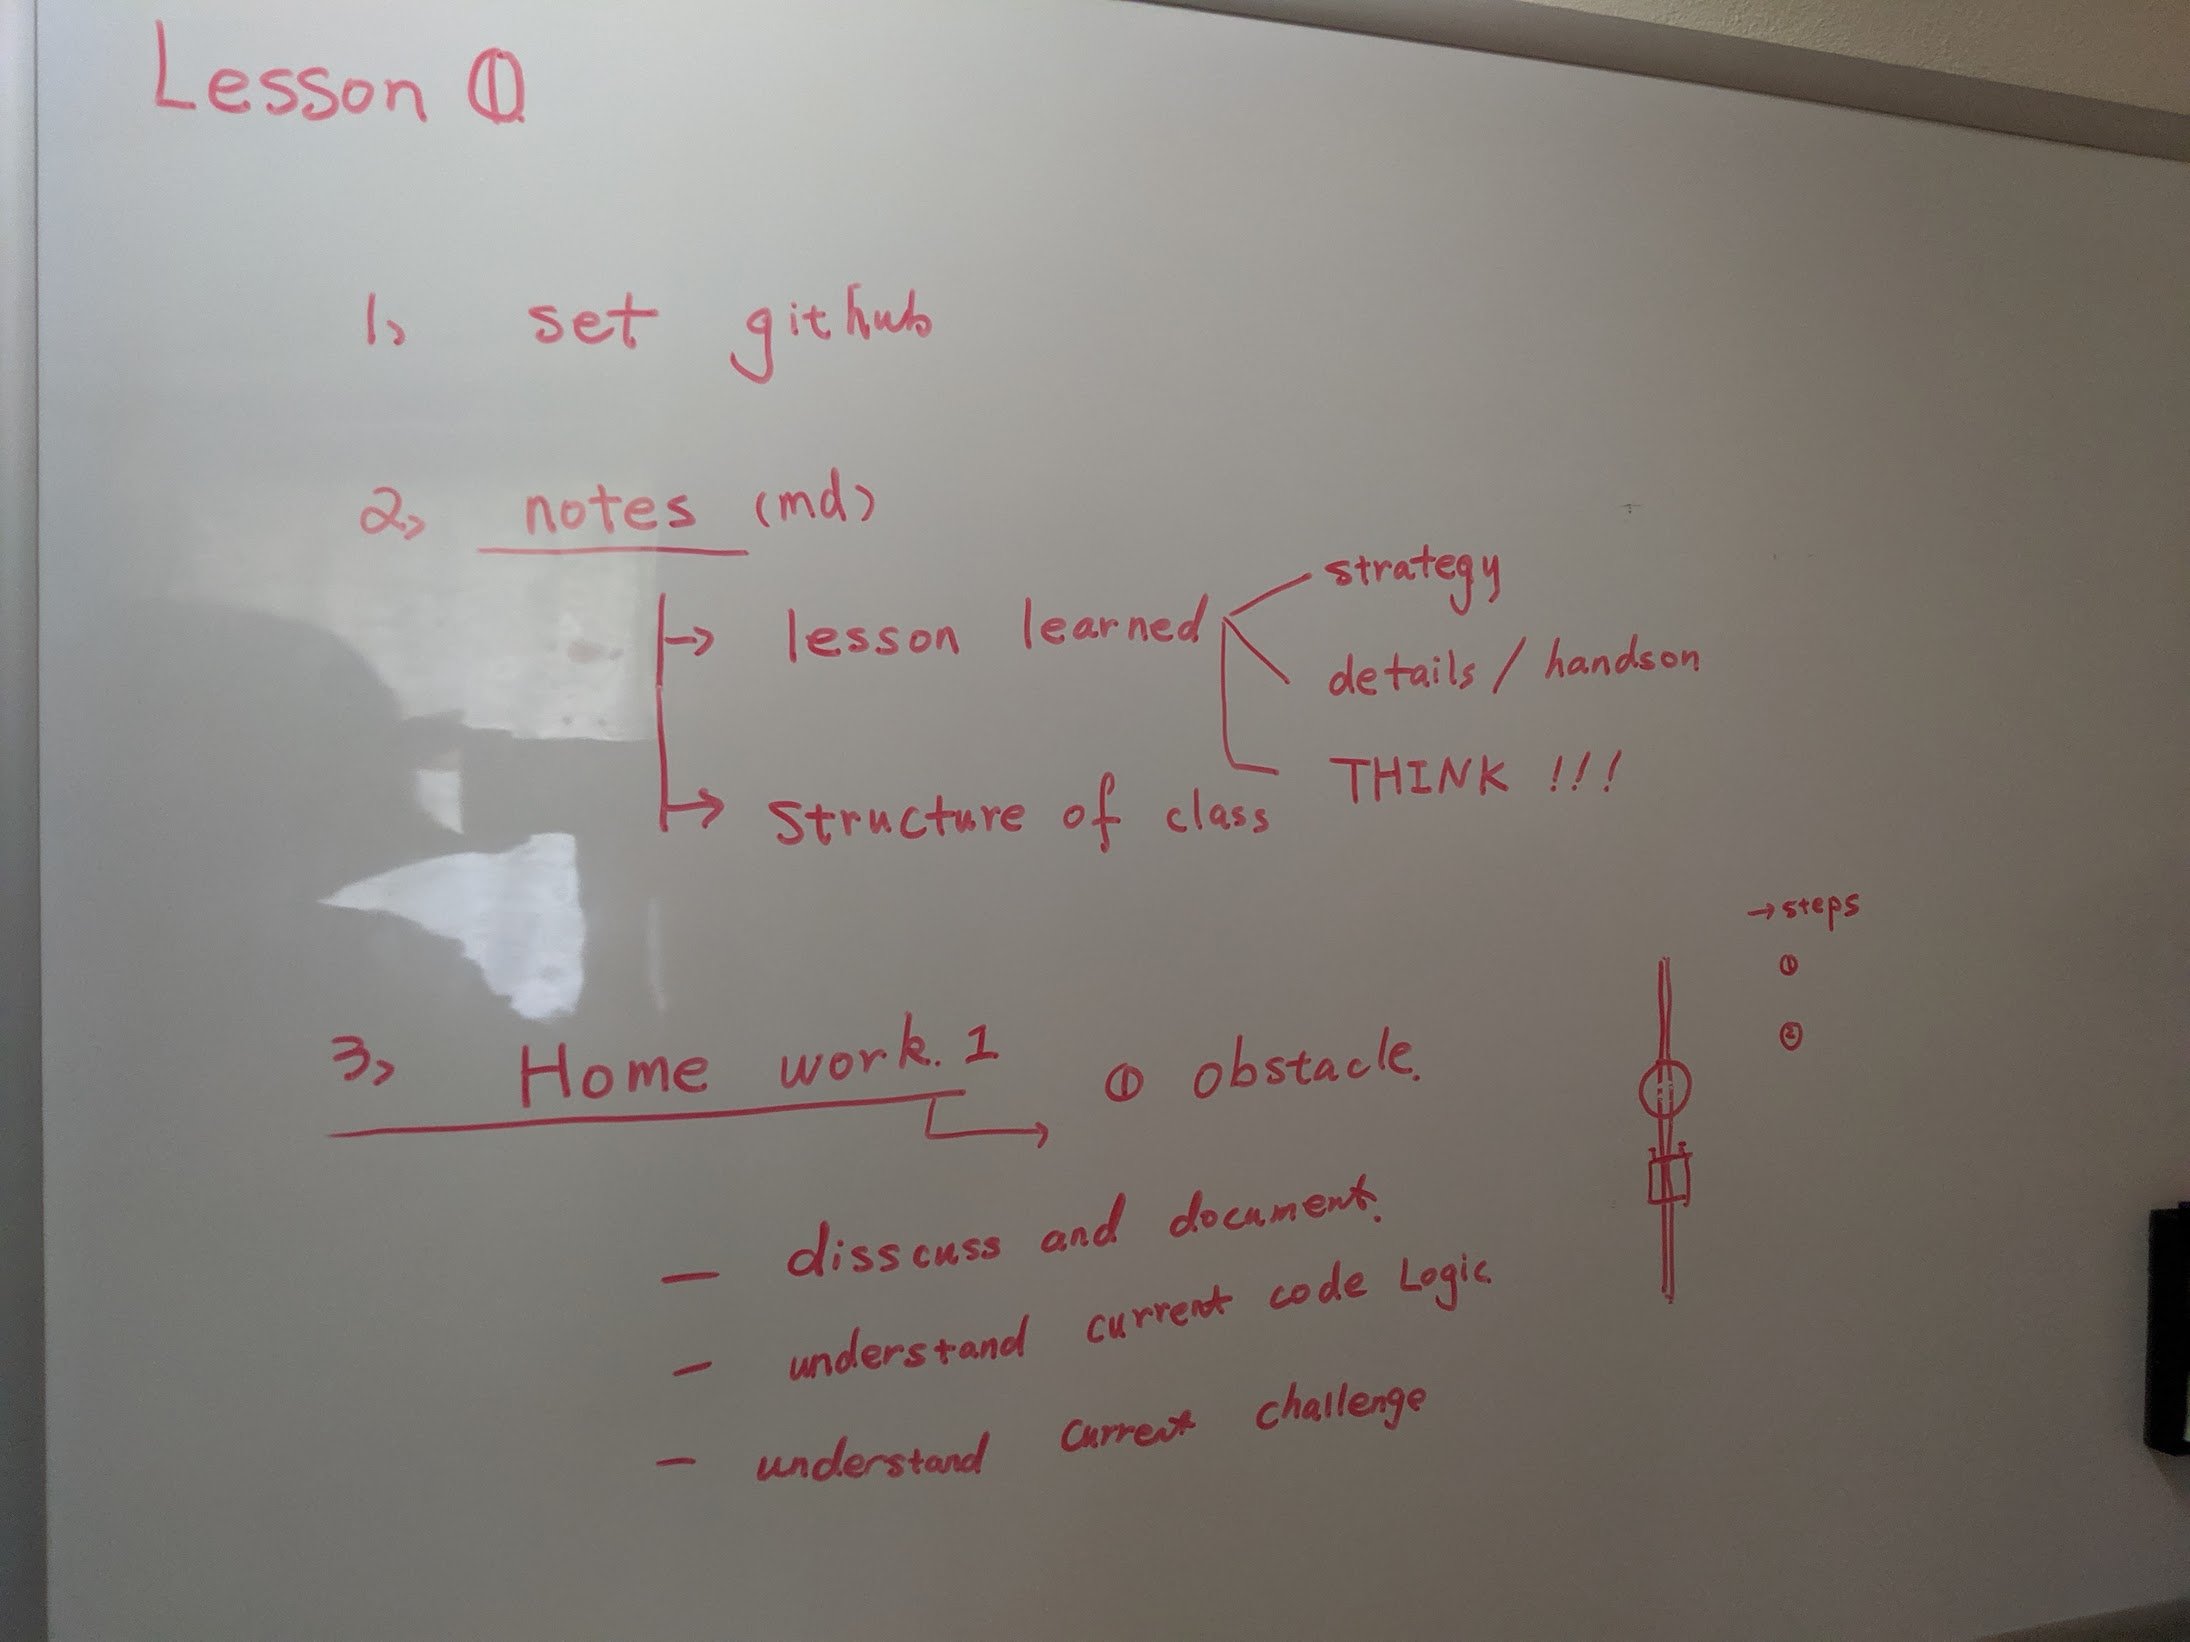 Lesson ①
1, set github
2, notes (md)
→ lesson learned
strategy
details / handson
THINK !!!
→ structure of class
3, Home work. 1
① obstacle.
→ steps
①
②
— disscuss and document.
— understand current code Logic
— understand current challenge